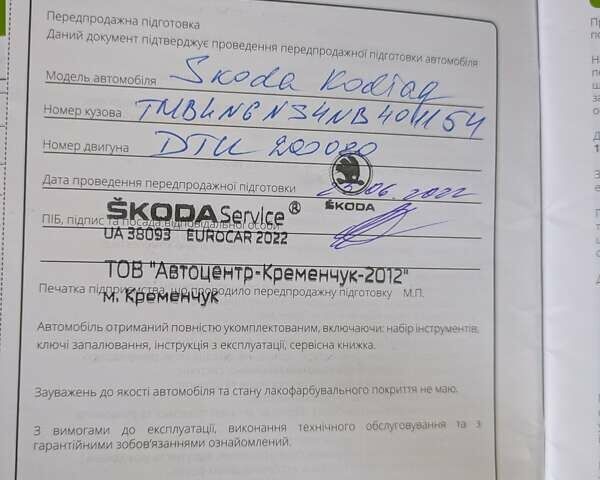 Передпродажна підготовка
Даний документ підтверджує проведення передпродажної підготовки автомобіля
Модель автомобіля Skoda Kodiaq
Номер кузова TMBLN6NS4NB401154
Номер двигуна DTU 200080
Дата проведення передпродажної підготовки 25.06.2022
ŠKODA
ŠKODA Service®
ПІБ, підпис та посада відповідальної особи
UA 38093 EUROCAR 2022
ТОВ "Автоцентр-Кременчук-2012"
Печатка підприємства, що проводило передпродажну підготовку М.П.
м. Кременчук
Автомобіль отриманий повністю укомплектованим, включаючи: набір інструментів,
ключі запалювання, інструкція з експлуатації, сервісна книжка.
Зауважень до якості автомобіля та стану лакофарбувального покриття не маю.
З вимогами до експлуатації, виконання технічного обслуговування та з
гарантійними зобов'язаннями ознайомлений.